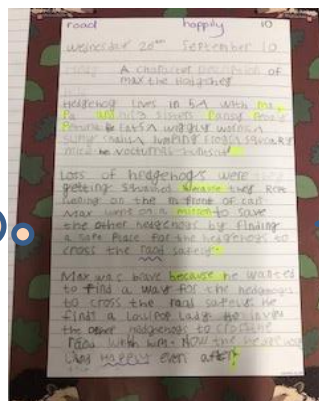 road happily 10
Wednesday 20th September 10
A character Description of
max the Hedgehog
Hedgehog lives in 5A with Ma,
Pa and his 3 sisters Pansy Peony
Petunia he eats wiggly worms
slimy snails jumping frogs
mice he nocturnal
Lots of hedgehogs were
getting squashed because they kept
on the in front of cars.
Max went on a mission to save
the other hedgehogs by finding
a safe place for the hedgehogs to
cross the raod safely.
Max was brave because he wanted
to find a way for the hedgehogs
to cross the raod safely. He
finds a Lady. He
the other hedgehogs to cross the
raod with him. Now the
Lived Happly even after!